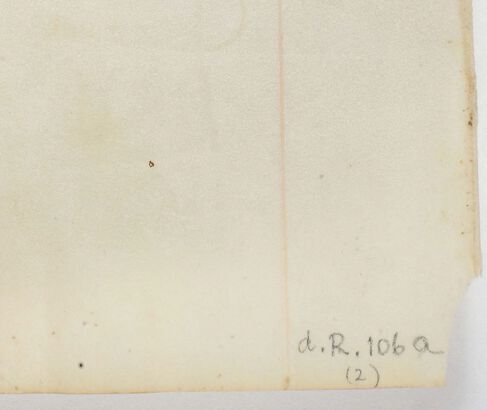 d.R.106a
(2)